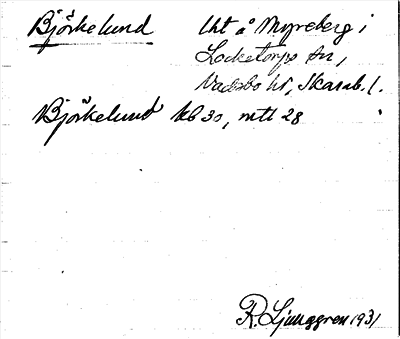 Björkelund lht å Myreberg i
Locketorps sn,
Vadsbo hd, Skarab. l.
Björkelund kb 30, mtl 28
R. Ljunggren 1931